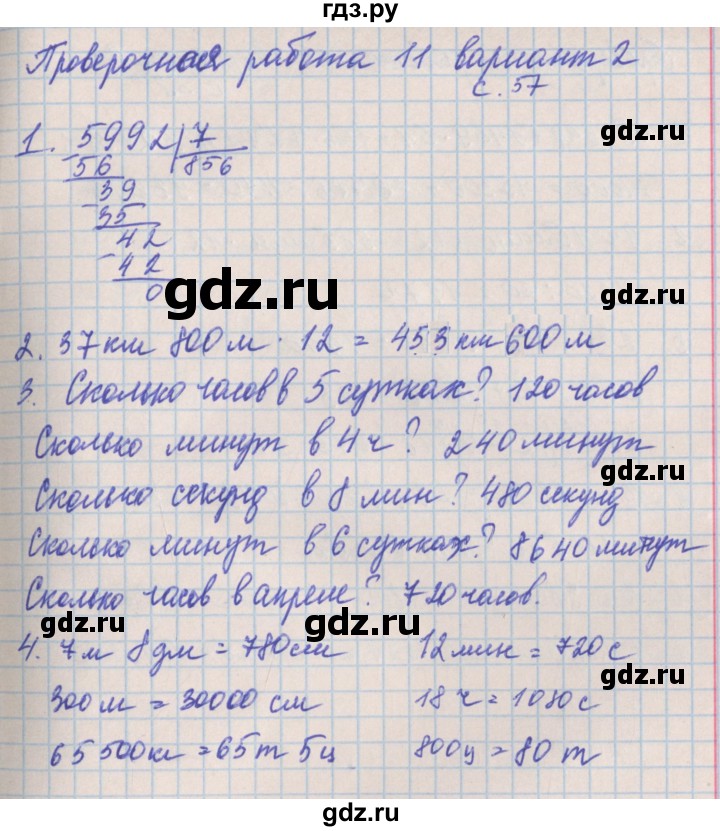 гдз.ру
Проверочная работа 11 вариант 2
с. 57
gdz.ru
1. 5992 | 7
56 856
gdz.ru
39
35
42
42
0
gdz.ru
gdz.ru
2. 37км 800м · 12 = 453км 600м
3. Сколько часов в 5 сутках? 120 часов
Сколько минут в 4ч? 240 минут
gdz.ru
Сколько секунд в 8 мин? 480 секунд
Сколько минут в 6 сутках? 8640 минут
Сколько часов в апреле? 720 часов.
gdz.ru
gdz.ru
gdz.ru
4. 7м 8дм = 780см 12мин = 720с
300м = 30000см 18ч = 1080с
65500кг = 65т 5ц 800ц = 80т
gdz.ru